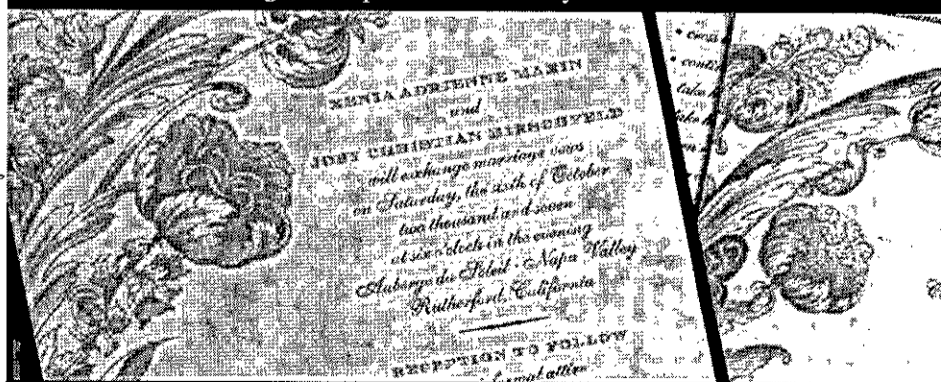 XENIA ADRIENNE MANIN
and
JOBY CHRISTIAN HIRSCHFELD
will exchange marriage vows
on Saturday, the sixth of October
two thousand and seven
at six o'clock in the evening
Auberge du Soleil · Napa Valley
Rutherford, California
RECEPTION TO FOLLOW
formal attire